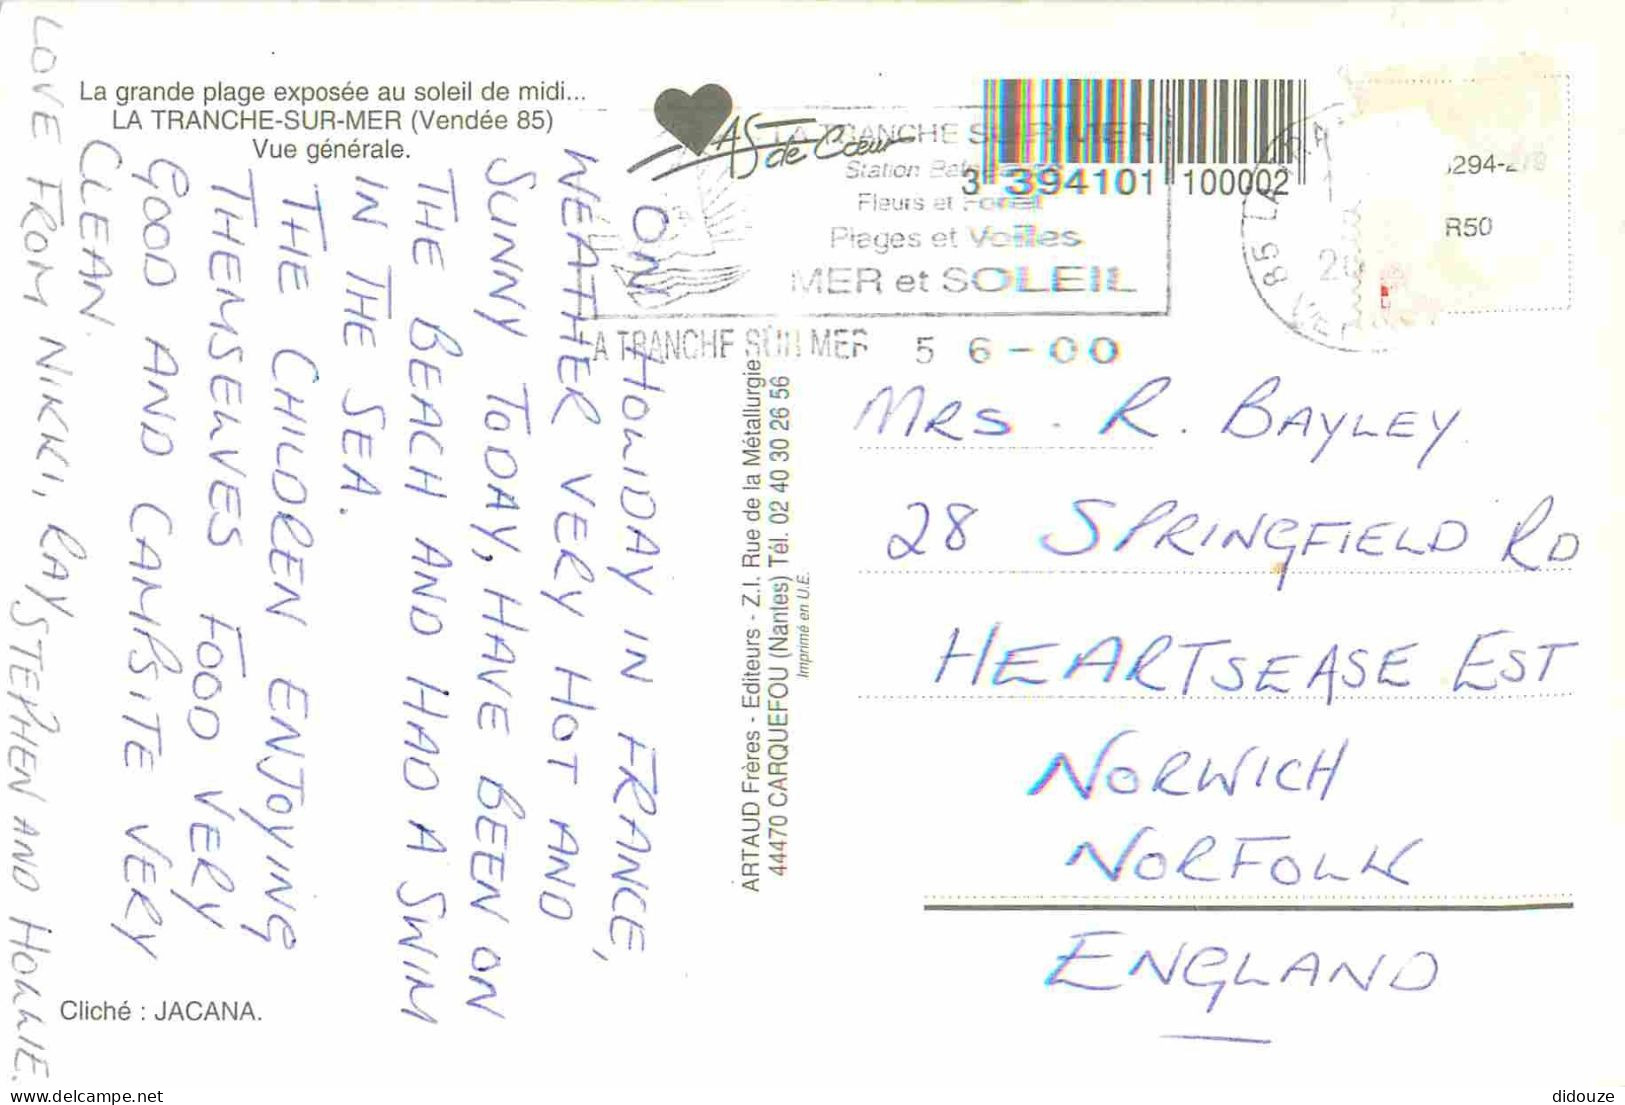 La grande plage exposée au soleil de midi...
LA TRANCHE-SUR-MER (Vendée 85)
Vue générale.
ON HOLIDAY IN FRANCE,
WEATHER VERY HOT AND
SUNNY TODAY, HAVE BEEN ON
THE BEACH AND HAD A SWIM
IN THE SEA.
THE CHILDREN ENJOYING
THEMSELVES FOOD VERY
GOOD AND CAMPSITE VERY
CLEAN.
LOVE FROM NIKKI, RAY, STEPHEN AND HOLLIE.
Cliché : JACANA.
AS de Cœur
3 394101 100002
LA TRANCHE SUR MER
Station
Fleurs et Forêt
Plages et Voiles
MER et SOLEIL
LA TRANCHE SUR MER 5 6 - 00
85 LA
294-2
R50
ARTAUD Frères - Editeurs - Z.I. Rue de la Métallurgie
44470 CARQUEFOU (Nantes) Tél. 02 40 30 26 56
Imprimé en U.E.
MRS. R. BAYLEY
28 SPRINGFIELD RD
HEARTSEASE EST
NORWICH
NORFOLK
ENGLAND
didouze
delcampe.net